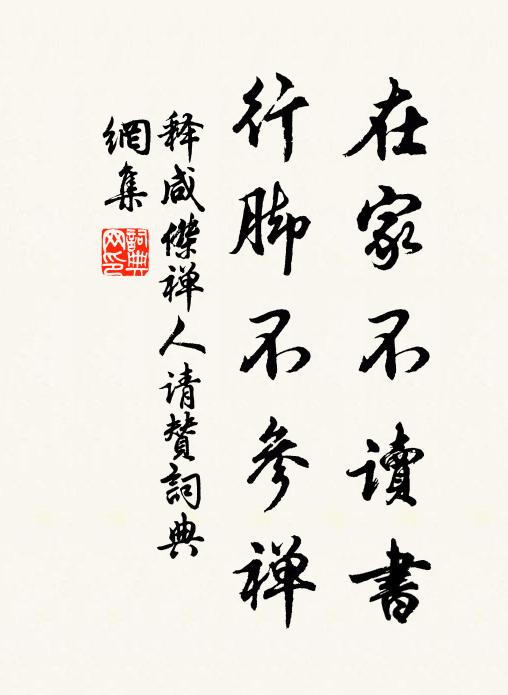 在家不讀書
行脚不参禅
释咸傑禅人请贊詞典
網集
詞典
网印